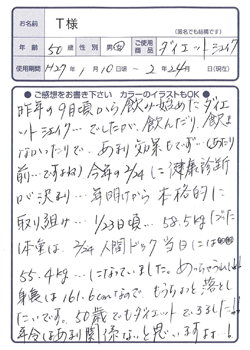 お名前 T様
(匿名でも結構です)
年齢 50歳 性別 男・女 ご使用商品 ダイエットシェイク
使用期間 H27年1月10日頃 ~ 2年24日(現在)
●ご感想をお書き下さい カラーのイラストもOK●
昨年の9月頃から飲み始めたダイエ
ットシェイク…でしたが、飲んだり、飲ま
なかったりで、あまり効果もでず…(あたり
前…ですよね) 今年の2/24に健康診断
が決まり…年明けから本格的に
取り組み…1/23日頃…58.5kgだった
体重は、2/24人間ドック当日には
55.4kg…になっていました。めっちゃうれしい!
身長は161.6cmなので、もうちょっと落とし
たいです。50歳でもダイエットできました!!
年令はあまり関係ないと思いますよ!